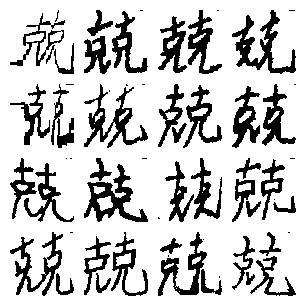 兢兢兢兢
兢兢兢兢
兢兢兢兢
兢兢兢兢